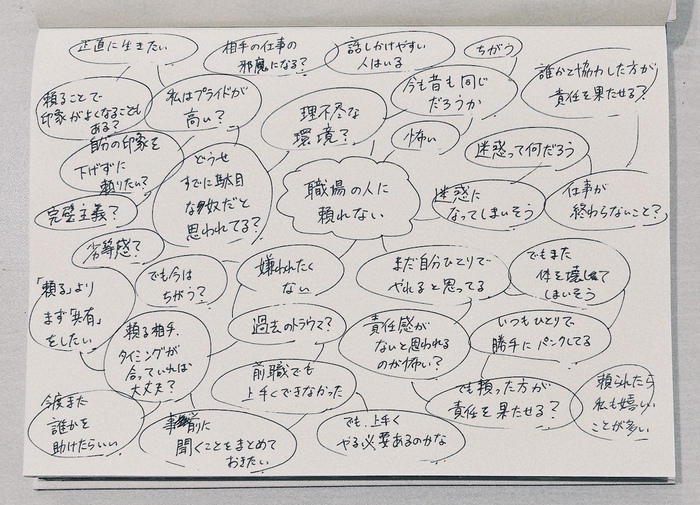 正直に生きたい
相手の仕事の
邪魔になる?
話しかけやすい
人はいる
ちがう
誰かと協力した方が
責任を果たせる?
頼ることで
印象がよくなることも
ある?
私はプライドが
高い?
理不尽な
環境?
今も昔も同じ
だろうか
怖い
迷惑って何だろう
自分の印象を
下げずに
頼りたい?
どうせ
すでに駄目
な奴だと
思われてる?
職場の人に
頼れない
迷惑に
なってしまいそう
仕事が
終わらないこと?
完璧主義?
劣等感?
でも今は
ちがう?
嫌われたく
ない
まだ自分ひとりで
やれると思ってる
でもまた
体を壊して
しまいそう
「頼る」より
まず「共有」
をしたい
頼る相手、
タイミングが
合っていれば
大丈夫?
過去のトラウマ?
責任感が
ないと思われる
のが怖い?
いつもひとりで
勝手にパンクしてる
前職でも
上手くできなかった
でも頼った方が
責任を果たせる?
頼られたら
私も嬉しい
ことが多い
今度また
誰かを
助けたらいい
事前に
聞くことをまとめて
おきたい
でも、上手く
やる必要あるのかな